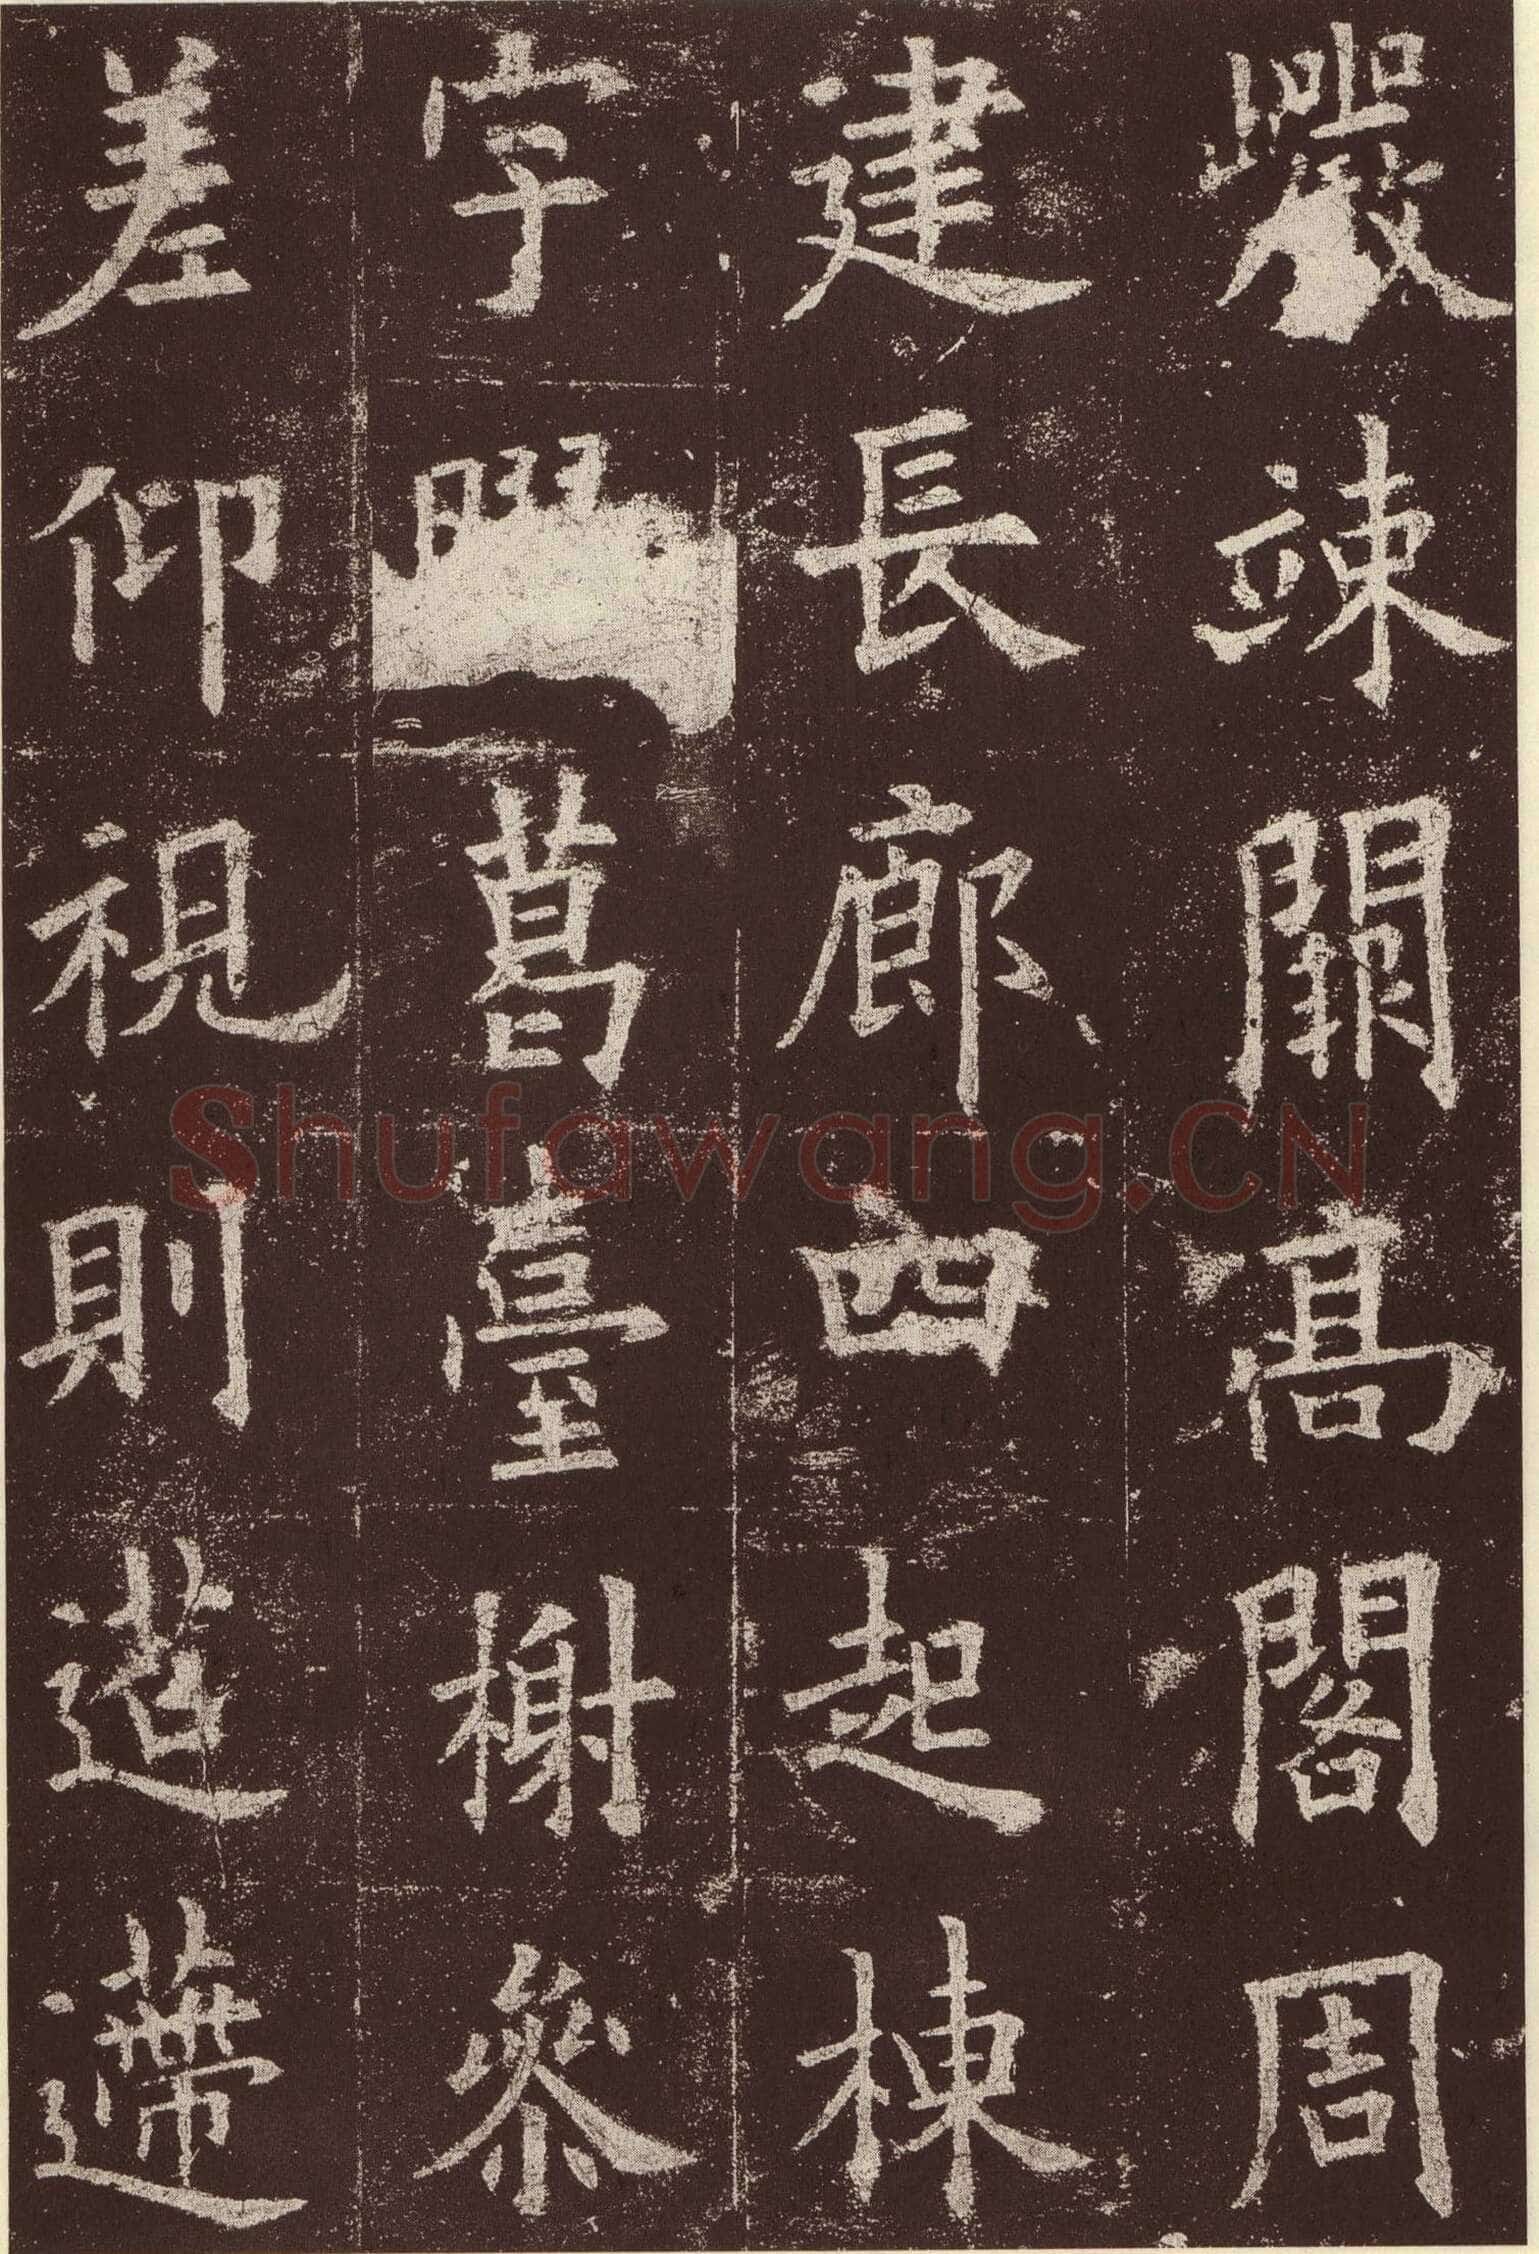 巖竦闕高閣周
建長廊四起棟
宇葛臺榭參
差仰視則迢遰
Shufawang.CN